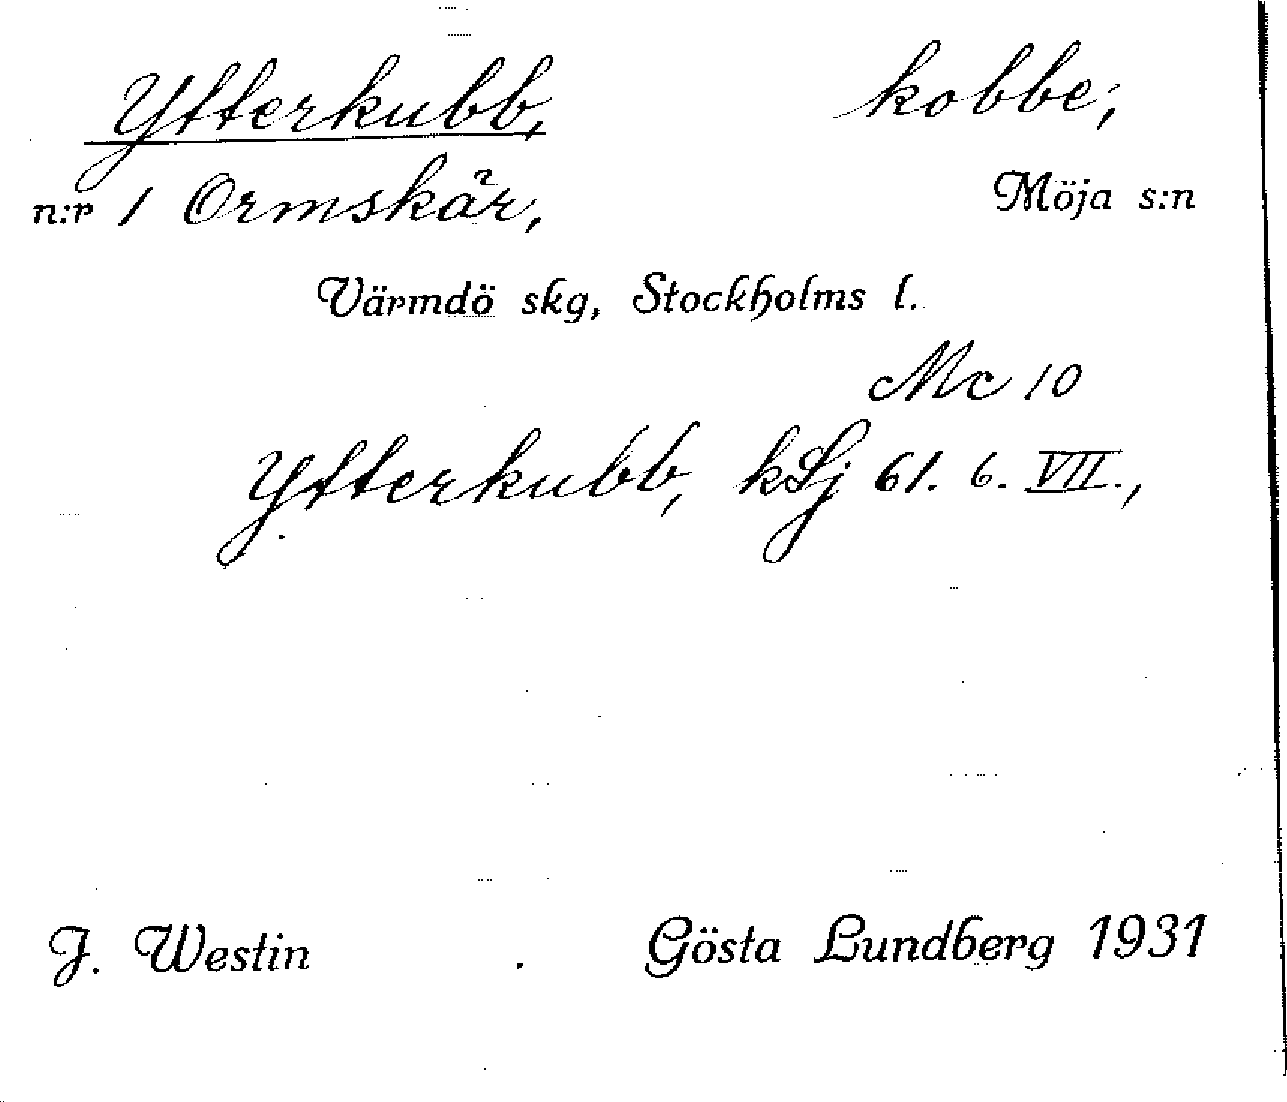 Ytterkubb, kobbe;
n:r 1 Ormskär, Möja s:n
Värmdö skg, Stockholms l.
Mc 10
Ytterkubb, kSj 61. 6. VII.,
J. Westin Gösta Lundberg 1931